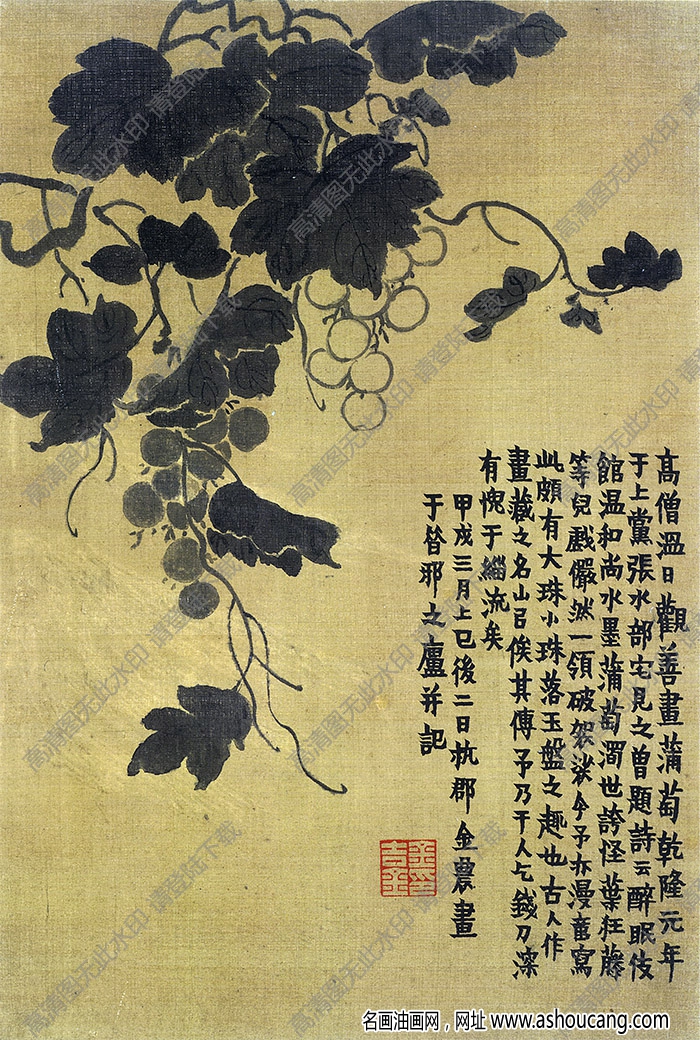 高僧溫日觀善畫蒲萄乾隆元年
于上黨張水部宅見之曾題詩云醉眠伎
館温和尚水墨蒲萄濁世誇怪葉狂藤
等兒戲儼然一領破袈裟今予亦漫塗寫
此頗有大珠小珠落玉盤之趣也古人作
畫藏之名山㠯俟其傳予乃干人乞錢刀深
有愧于緇流矣
甲戌三月上巳後二日杭郡金農畫
于昝那之廬并記
金印
吉金
高清图无此水印 请登陆下载
名画油画网，网址 www.ashoucang.com